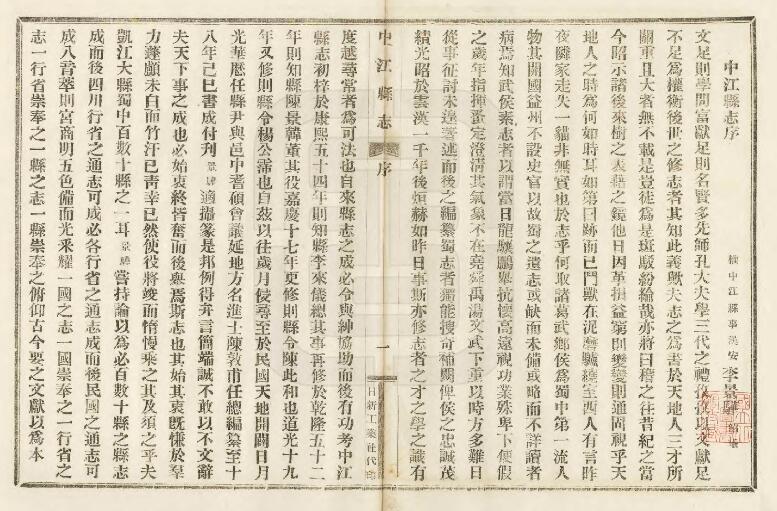 中江縣志序
權中江縣事漢安李景
文足則學問富獻足則名賢多先師孔大夫學三代之禮以文獻足
不足爲權衡後世之修志者其知此義歟夫志之爲書於天地人三才所
關重且大者無不載是豈徒爲是斑駁紛綸哉亦將曰稽之往昔紀之當
今昭示諸後來樹之表藉之鏡他日因革損益窮則變變則通罔視乎天
地人之時爲何如時耳如第曰跡而已鬥獸在泥塵驥繞至西人有言昨
夜隣家走失一貓非無實也於志乎何取諸葛武鄉侯爲蜀中第一流人
物其開國益州不設史官以故蜀之遺志或缺而未備或略而不詳讀者
病焉知武侯素志者以謂當日龍驤鵬舉抗懷高遠視功業殊卑下使假
之歲年指揮蕩定澄淸其氣象不在堯舜禹湯文武下重以時方多難日
從事征討未遑著述而後之編纂蜀志者獨能搜奇補闕俾侯之忠誠茂
績光昭於雲漢一千年後烜赫如昨日事斯亦修志者之才之學之識有
中江縣志
序
一
日新工業社代印
度越尋常者爲可法也自來縣志之成必令與紳協助而後有功考中江
縣志初梓於康熙五十四年則知縣李來儀總其事再修於乾隆五十二
年則知縣陳景韓董其役嘉慶十七年更修則縣令陳此和也道光十九
年又修則縣令楊公霈也自茲以往歲月侵尋至於民國天地開闢日月
光華歷任縣尹與邑中耆碩會議延地方名進士陳敦甫任總編纂至十
八年己巳書成付刋景適攝篆是邦例得弁言簡端誠不敢以不文辭
夫天下事之成也必始衷終皆奮而後興焉斯志也其始其衷旣慊於羣
力蓬顱未白而竹汗已靑幸已然使役將竣而惰慢乘之其及須之乎夫
凱江大縣蜀中百數十縣之一耳景嘗持論以爲必百數十縣之縣志
成而後四川行省之通志可成必各行省之通志成而後民國之通志可
成八音萃則宮商明五色備而光采耀一國之志一國崇奉之一行省之
志一行省崇奉之一縣之志一縣崇奉之俯仰古今要之文獻以爲本